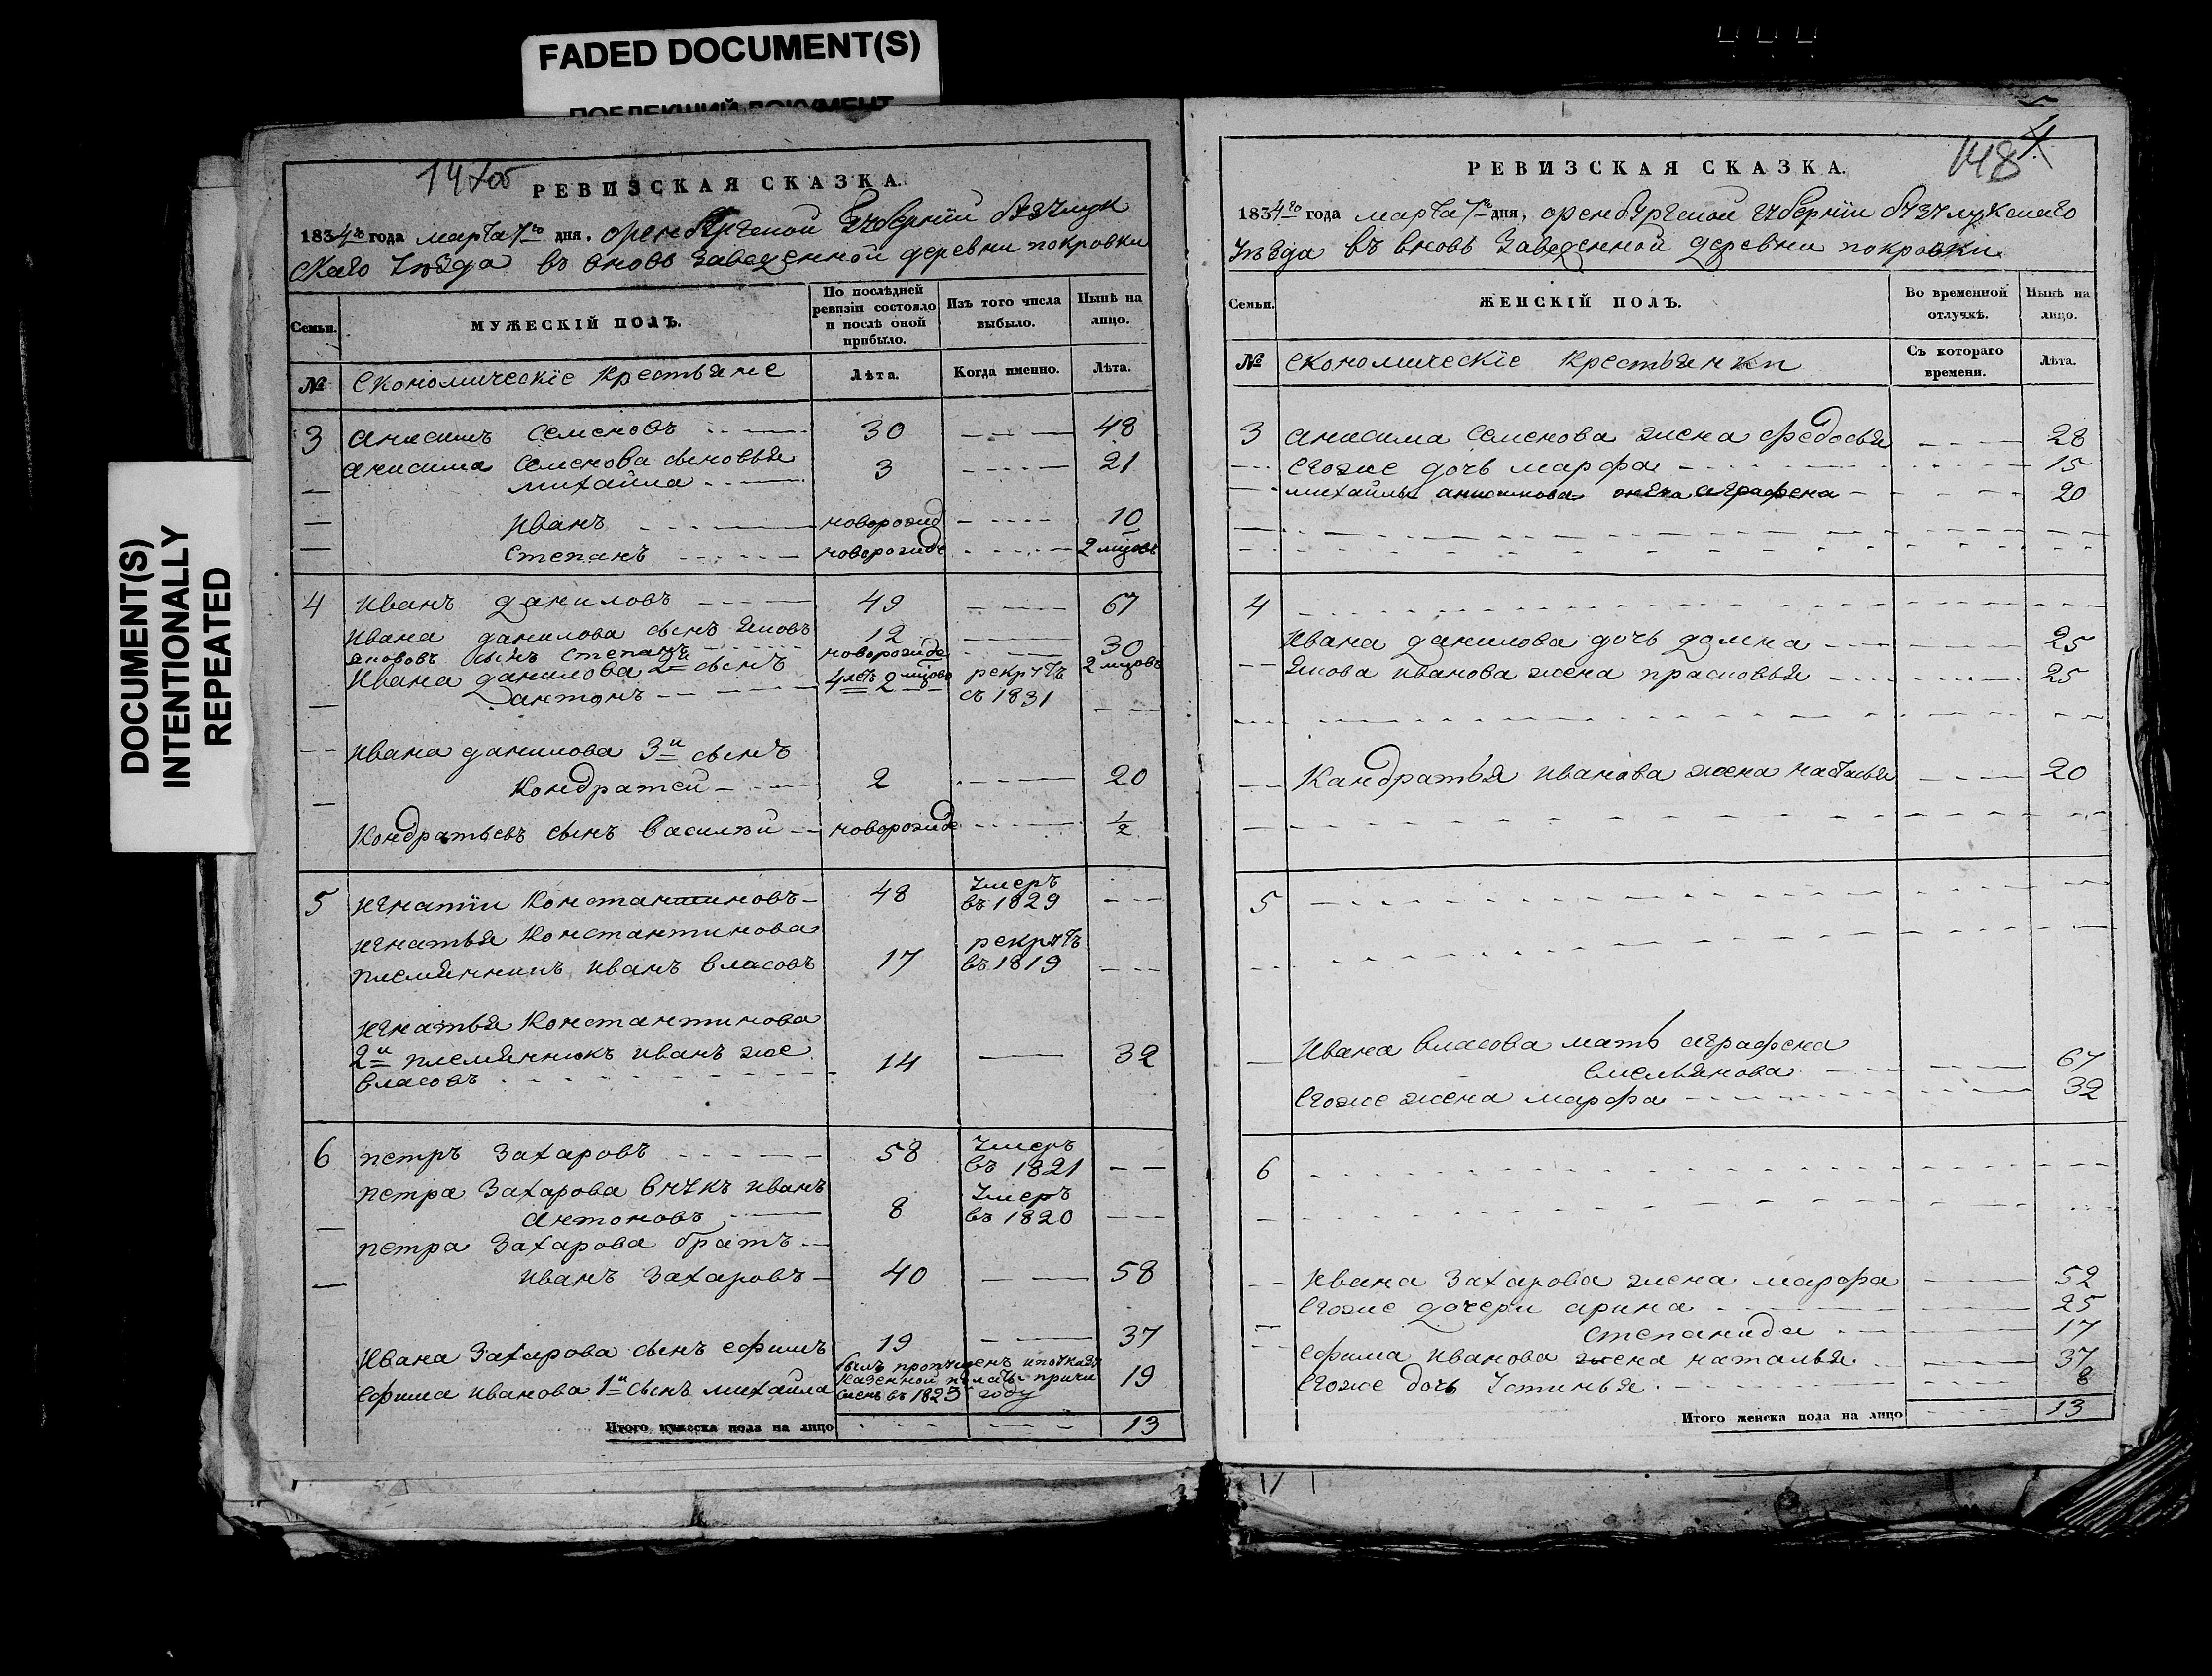 FADED DOCUMENT(S)
DOCUMENT(S)
INTENTIONALLY
REPEATED
РЕВИЗСКАЯ СКАЗКА.
1834го года марта 7го дня. оренбургской губернiи бузулук
скаго уѣзда въ вновь заведенной деревни покровки
Семьи.
МУЖЕСКІЙ ПОЛЪ.
По послѣдней ревизіи состояло и послѣ оной прибыло.
Изъ того числа выбыло.
Нынѣ на лицо.
№ Економическіе крестьяне Лѣта. Когда именно. Лѣта.
3 анисимъ семеновъ 30 48
анисима семенова сыновья
михаила 3 21
иванъ новорожд 10
степанъ новорожде 2 мцовъ
4 иванъ даниловъ 49 67
ивана данилова сынъ яковъ 12 30
яковов сынъ степанъ новорожде 2 мцовъ
ивана данилова 2й сынъ
антонъ 4 лѣтъ 2 мцовъ рекрутъ съ 1831
ивана данилова 3й сынъ
кондратей 2 20
кондратьевъ сынъ василій новорожде ½
5 игнатіи константиновъ 48 умеръ въ 1829
игнатья константинова
племянникъ иванъ власовъ 17 рекрутъ въ 1819
игнатья константинова
2й племянникъ иванъ же
власовъ 14 32
6 петръ захаровъ 58 умеръ въ 1821
петра захарова внукъ иванъ
антоновъ 8 умеръ въ 1820
петра захарова братъ
иванъ захаровъ 40 58
ивана захарова сынъ ефимъ 19 37
ефима иванова 1й сынъ михаила былъ пропущенъ казенной въ 1825 году 19
Итого мужеска пола на лицо 13
148
РЕВИЗСКАЯ СКАЗКА.
1834го года марта 7го дня, оренбургской губерніи бузулукскаго
уѣзда въ вновь заведенной деревни покровки
Семьи.
ЖЕНСКІЙ ПОЛЪ.
Во временной отлучкѣ.
Нынѣ на лицо.
№ економическіе крестьянки Съ котораго времени. Лѣта.
3 анисима семенова жена федосья 28
егоже дочь марфа 15
михайлы жена аграфена 20
4
ивана данилова дочь домна 25
якова иванова жена прасковья 25
кандратья иванова жена настасья 20
5
ивана власова мать аграфена
емельянова 67
егоже жена марфа 32
6
ивана захарова жена марфа 52
егоже дочери арина 25
степанида 17
ефима иванова жена наталья 37
егоже дочь устинья 8
Итого женска пола на лицо 13